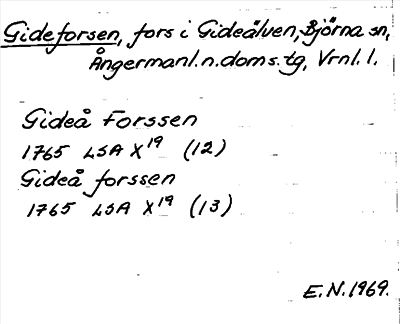 Gideforsen, fors i Gideälven, Björna sn,
Ångermanl. n. doms. tg, Vrnl. l.
Gideå Forssen
1765 LSA X19 (12)
Gideå forssen
1765 LSA X19 (13)
E.N. 1969.